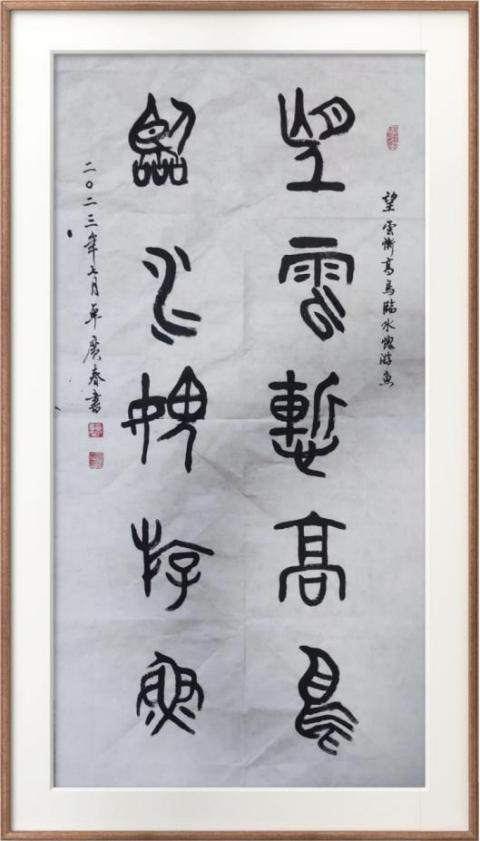 望雲慚高鳥臨水愧游魚
望雲慙高鳥
臨水愧游魚
二〇二三年七月卓廣春書